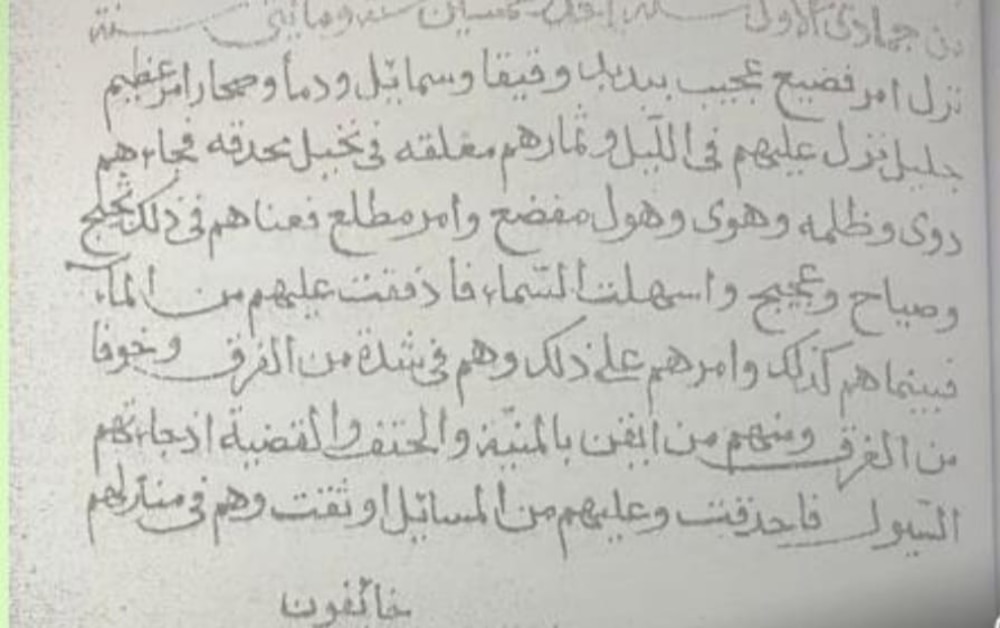 من جمادى الاول سنة احدى خمسين سنة ومائتي سنة
نزل امر فضيع عجيب ببدبد وقيقا وسمائل ودما وصحار امر عظيم
جليل نزل عليهم في الليل وثمارهم مغلقه في نخيل محدقه فجاءهم
دوى وظلمه وهوى وهول مفضع وامر مطلع فعناهم في ذلك تجلج
وصياح وعجيج واسهلت السماء فادفقت عليهم من الماء
فبينما هم كذلك وامرهم على ذلك وهم في شدة من الفرق وخوفا
من الغرق ومنهم من ايقن بالمنية والحتف والقضية اذ جاءتهم
السيول فاحدقت وعليهم من المسائل اوثقت وهم في منازلهم
خائفون